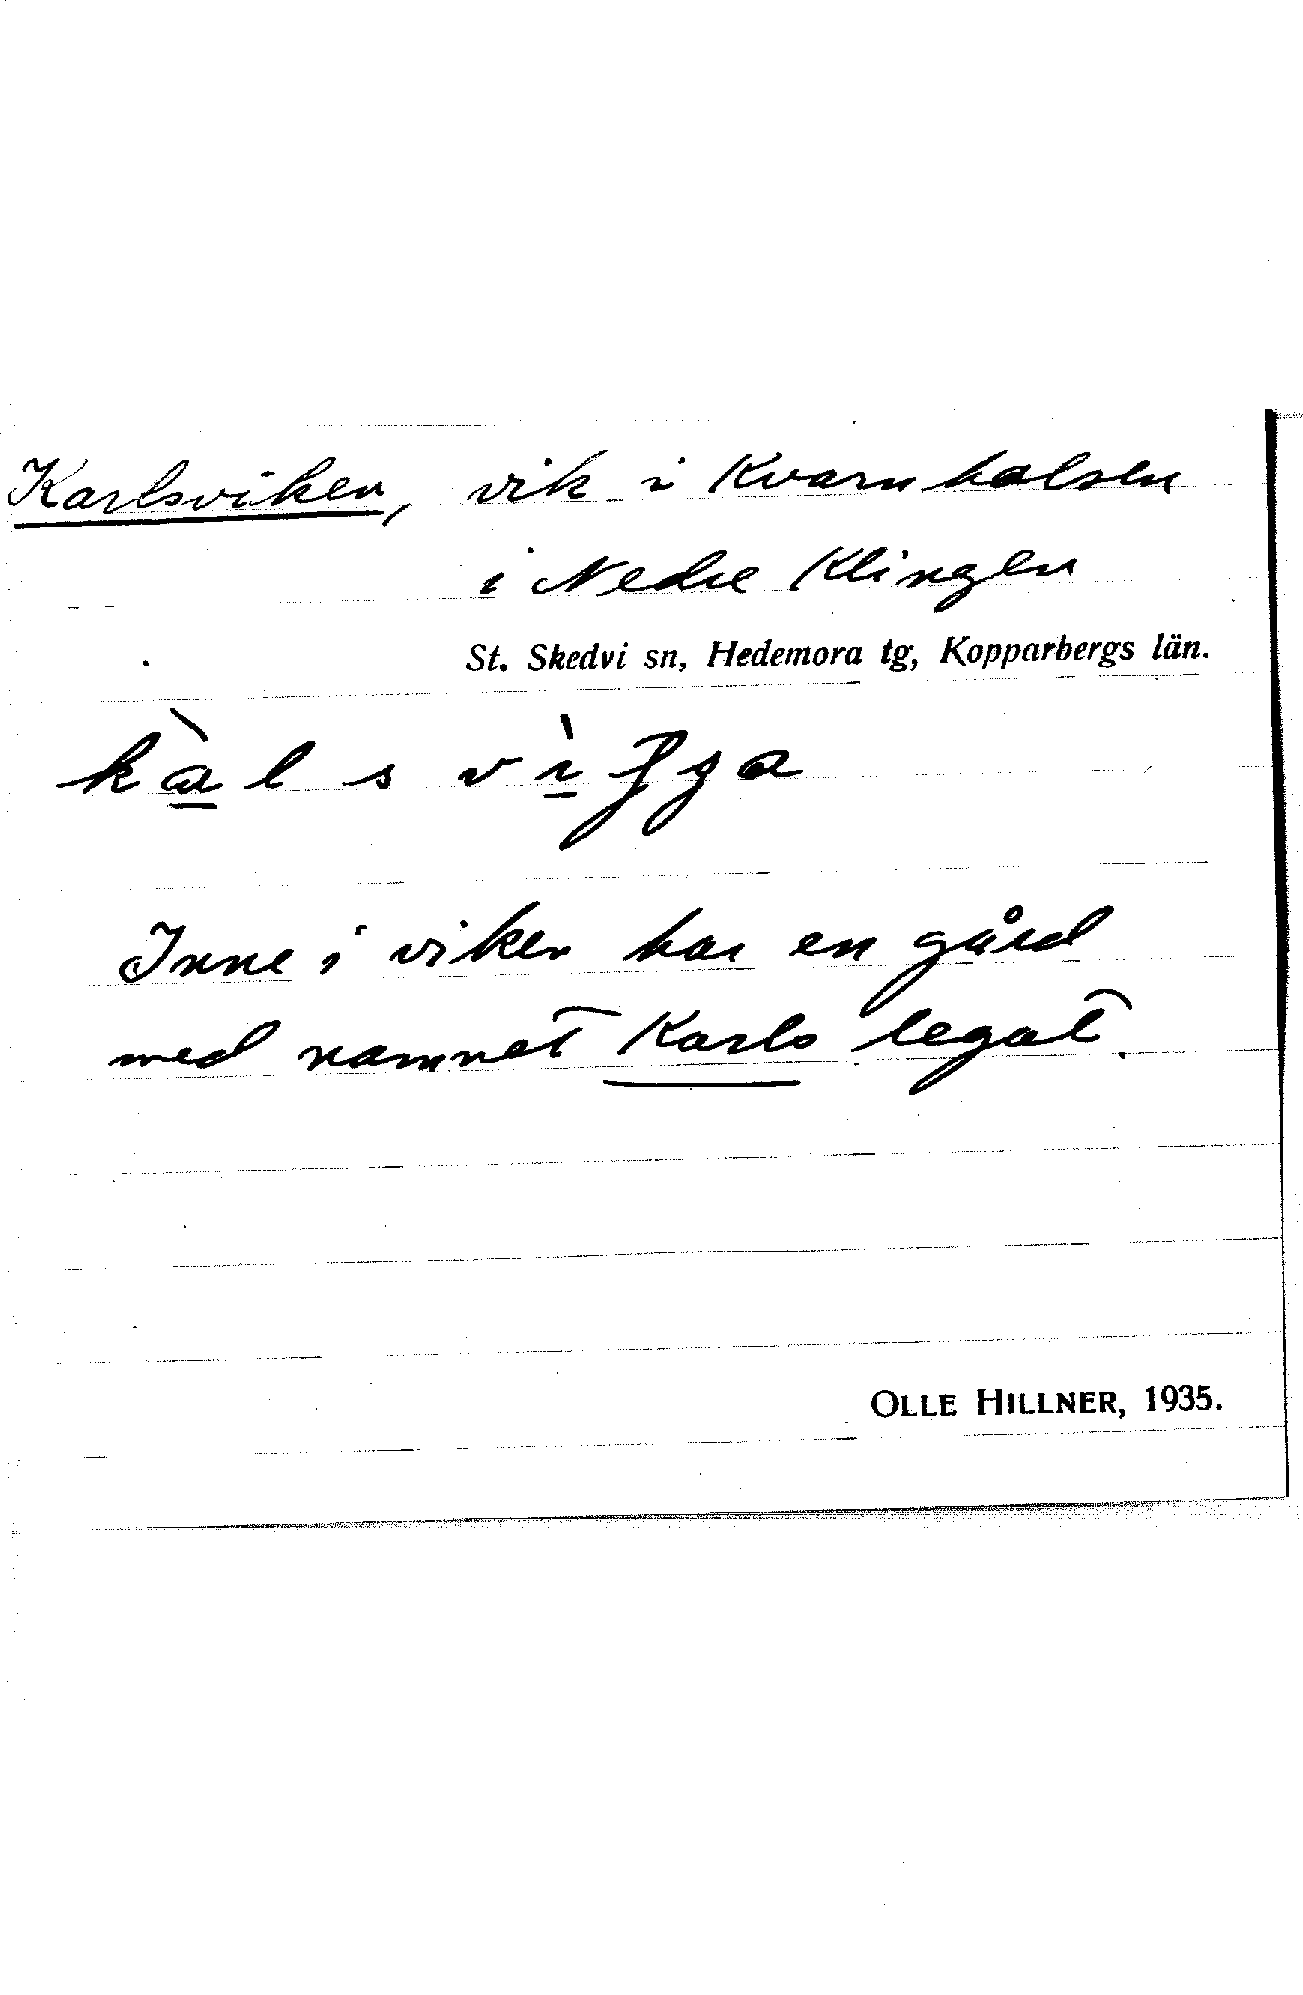 Karlsviken, vik i Kvarnhalsen
i Nedre Klingen
St. Skedvi sn, Hedemora tg, Kopparbergs län.
Inne i viken har en gård
med namnet Karls legat.
OLLE HILLNER, 1935.